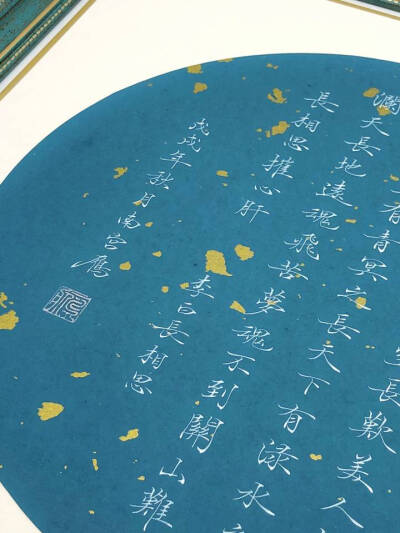 長歎美人
有青冥之長天下有渌水
瀾天長地遠魂飛苦夢魂不到關山難
長相思摧心肝
李白長相思
戊戌年秋月南宮